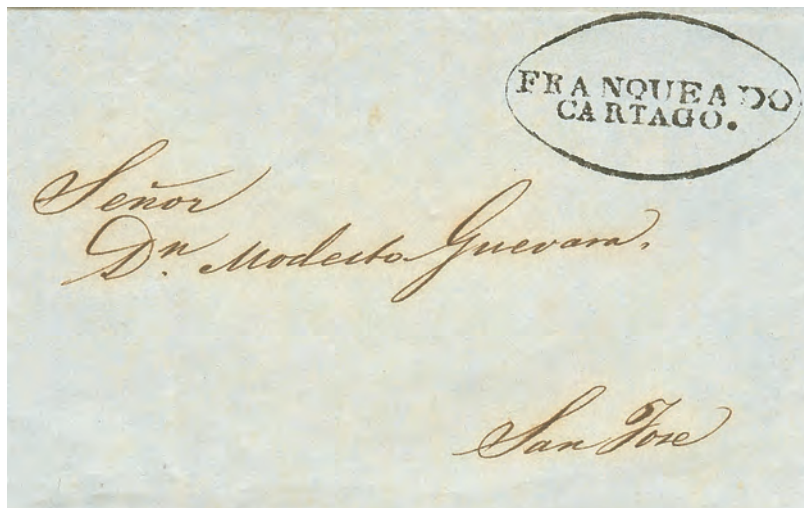 FRANQUEADO
CARTAGO.
Señor
Dn. Modesto Guevara.
San José